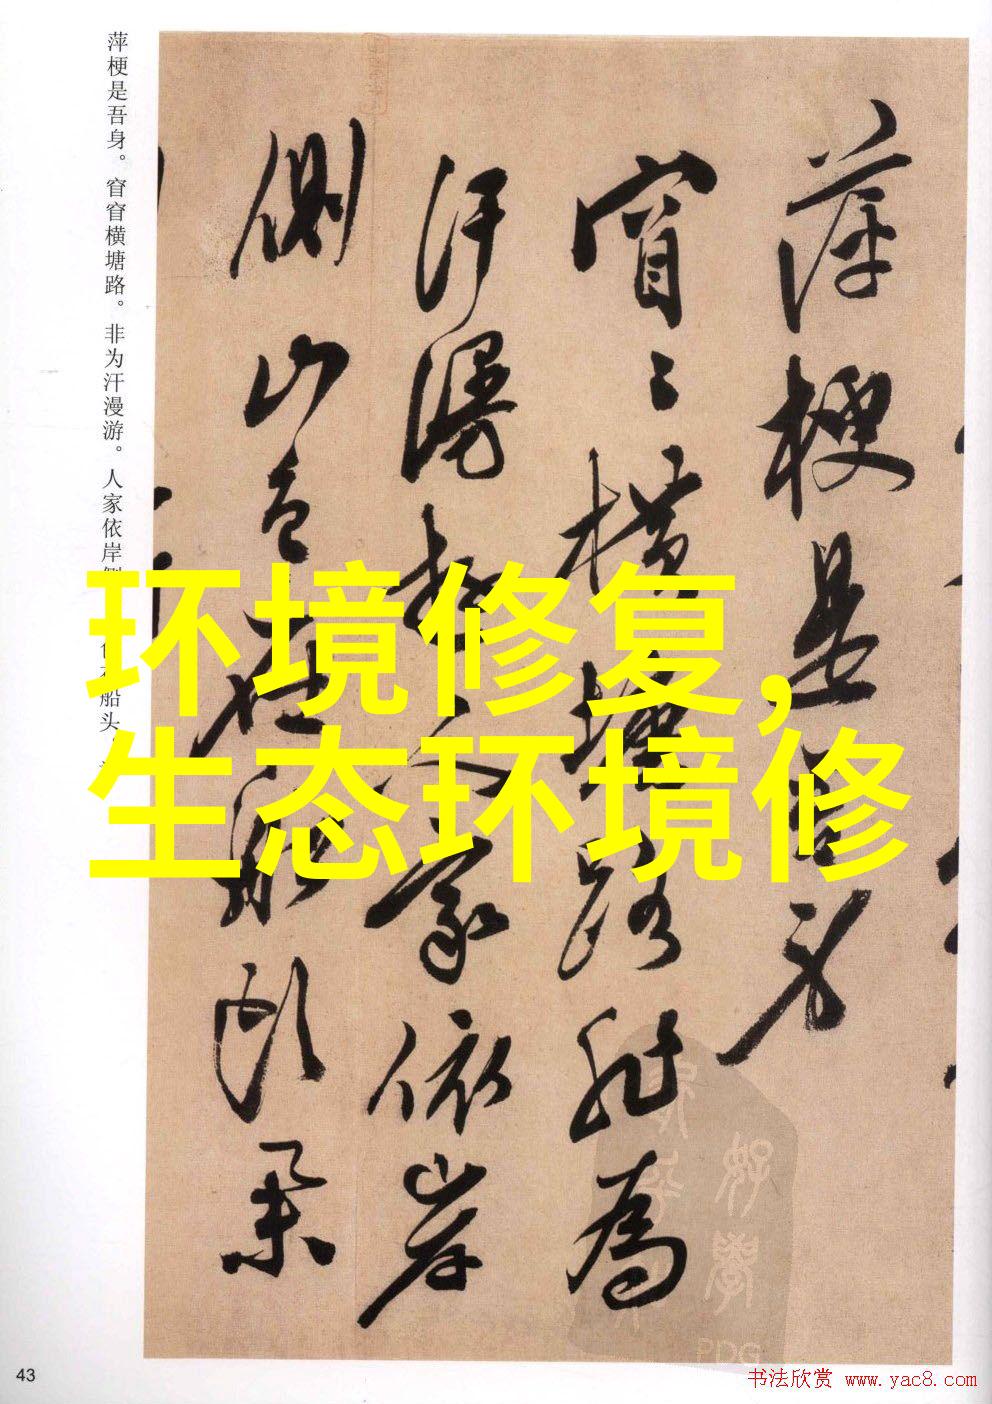 萍梗是吾身。窅窅横塘路。非为汗漫游。人家依岸 船头。
萍梗是吾身
窅〻横塘路非為
汗漫遊人家依岸
側山色在船頭
环境修复，
生态环境修
好學
PDG
43
书法欣赏 www.yac8.com